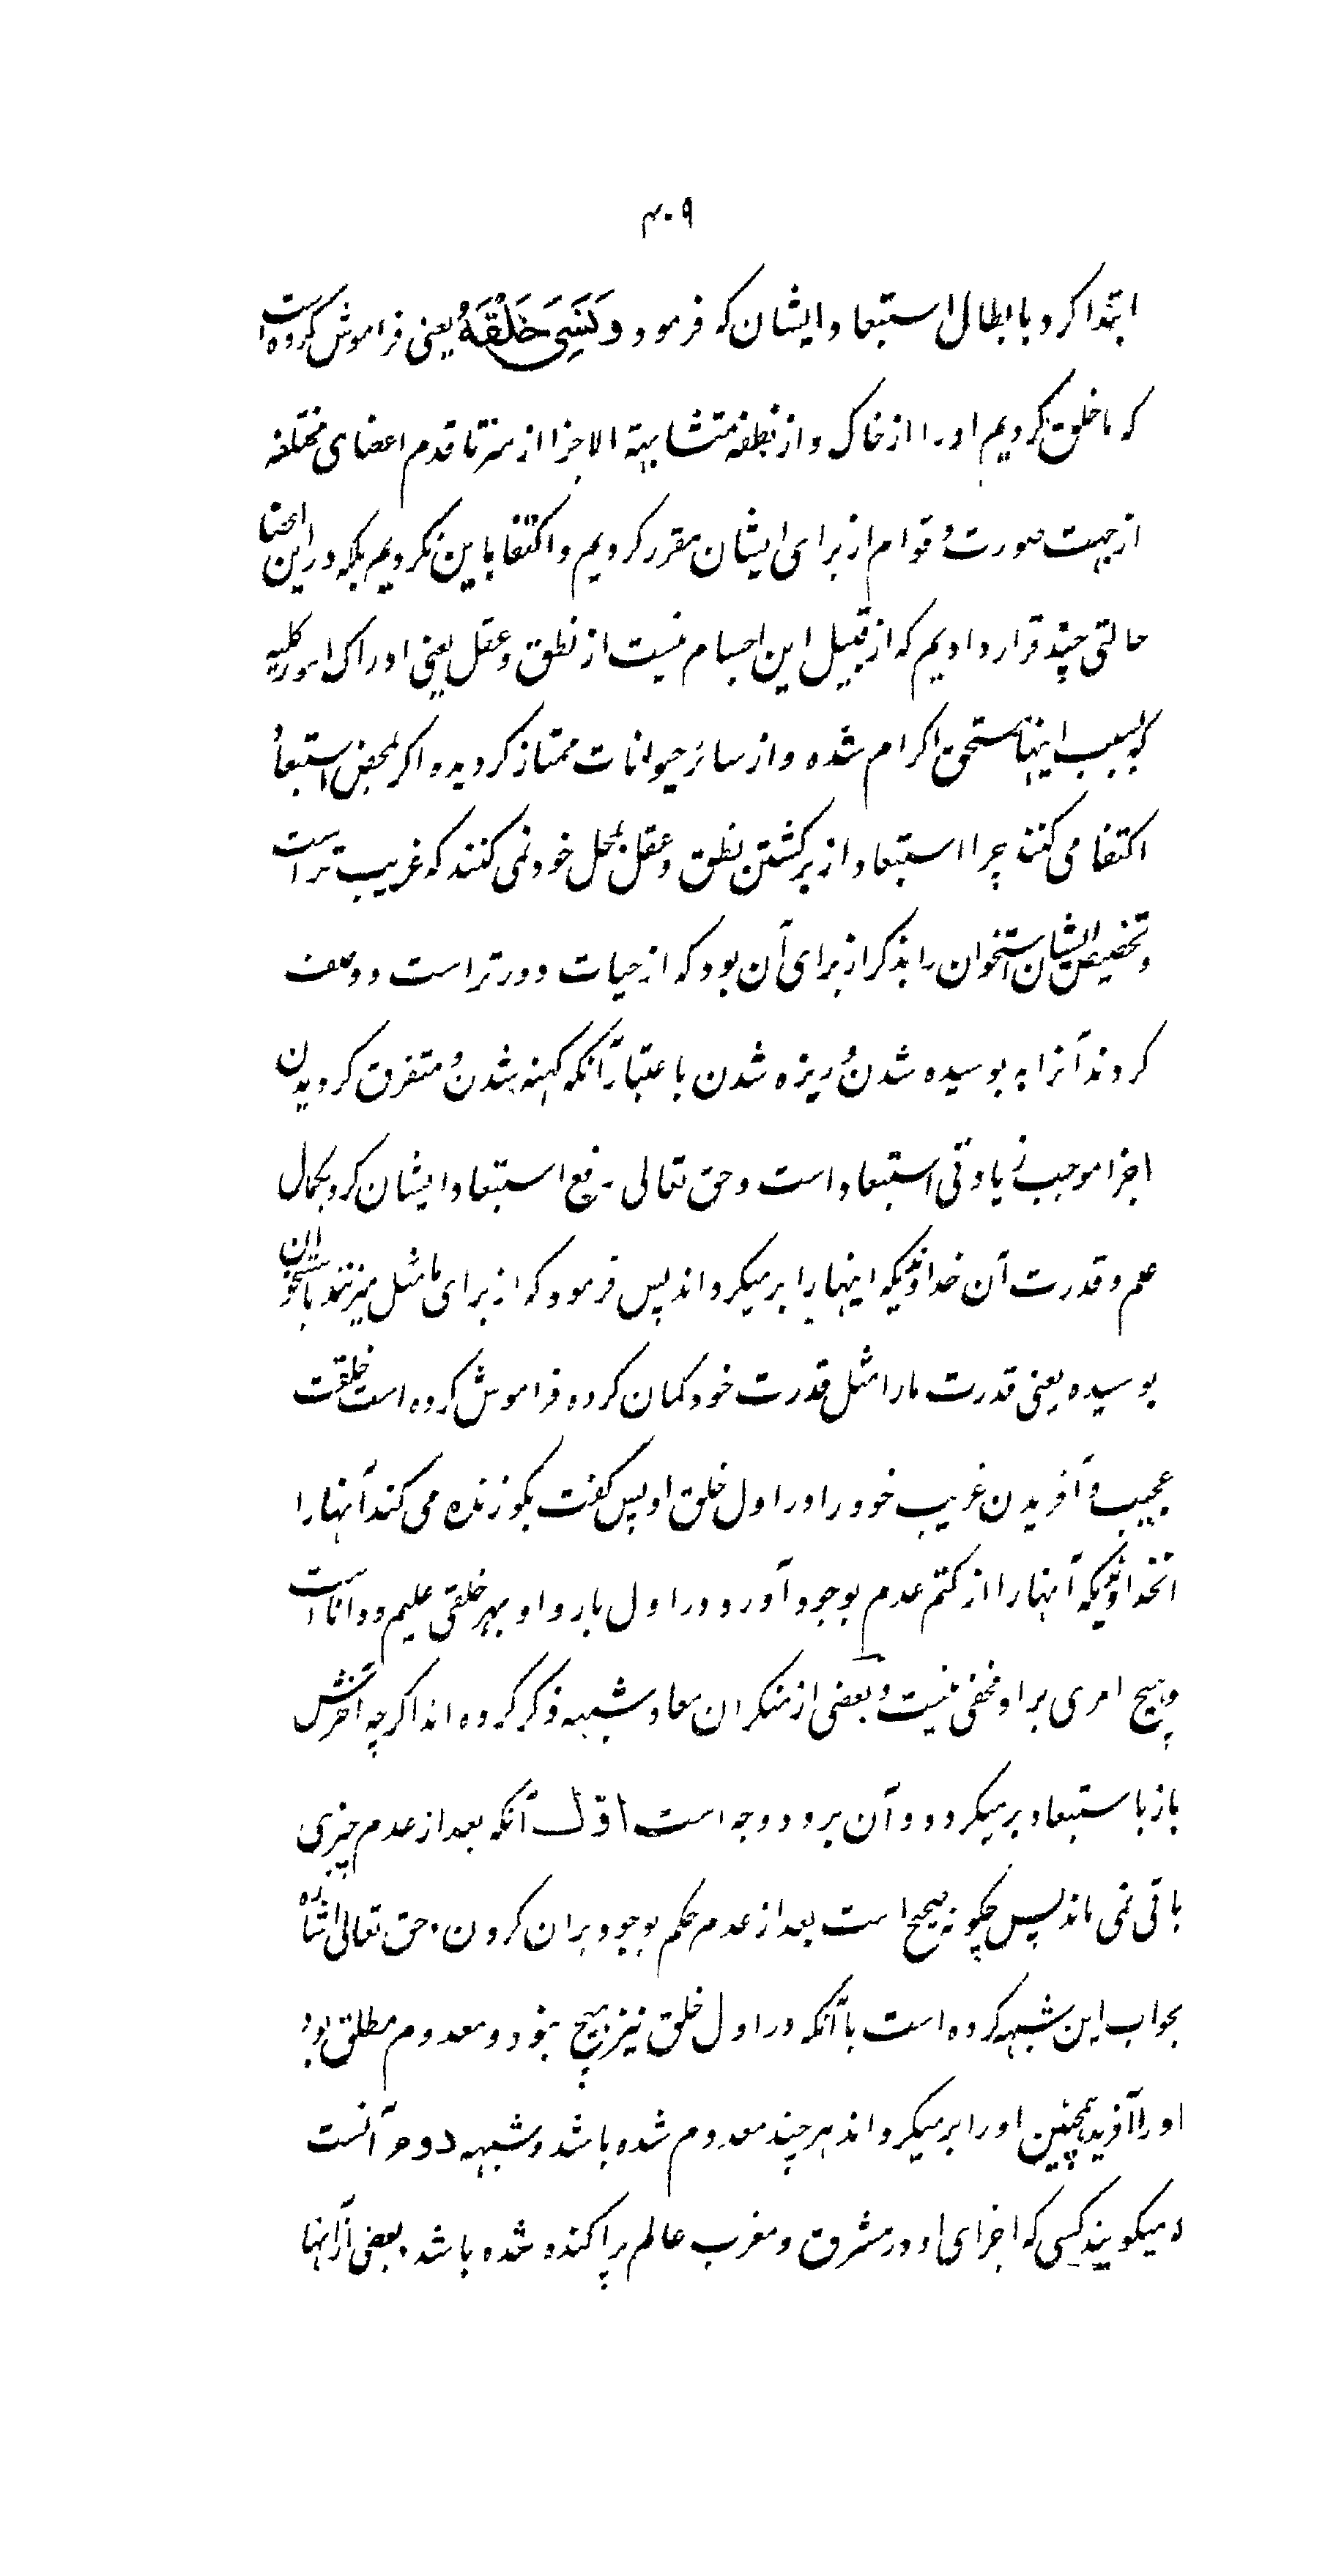 ۴۰۹
ابتدا کرد بابطال استبعاد ایشان که فرمود وَنَسِیَ خَلْقَهُ یعنی فراموش کرده است
که ما خلق کردیم او را از خاک و از نطفه متشابهة الاجزا از سر تا قدم اعضای مختلفه
از جهت صورت و قوام از برای ایشان مقرر کردیم و اکتفا باین نکردیم بلکه در این اعضا
حالتی چند قرار دادیم که از قبیل این اجسام نیست از نطق و عقل یعنی ادراک امور کلیه
که بسبب اینها مستحق اکرام شده و از سائر حیوانات ممتاز گردیده و اگر بمحض استبعاد
اکتفا می کنند چرا استبعاد از برگشتن نطق و عقل بمحل خود نمی کنند که غریب تر است
و تخصیص ایشان استخوان را بذکر از برای آن بود که از حیات دورتر است و وصف
کردند آنرا به پوسیده شدن و ریزه شدن باعتبار آنکه کهنه شدن و متفرق گردیدن
اجزا موجب زیادتی استبعاد است و حق تعالی رفع استبعاد ایشان کرد بکمال
علم و قدرت آن خداوندیکه اینها را برمیگرداند پس فرمود که از برای ما مثل میزنند باستخوان
پوسیده یعنی قدرت ما را مثل قدرت خود گمان کرده و فراموش کرده است خلقت
عجیب و آفریدن غریب خود را در اول خلق او پس گفت بگو زنده می کند آنها را
آنخداوندیکه آنها را از کتم عدم بوجود آورد در اول بار و او بهر خلقی علیم و دانا است
و هیچ امری بر او مخفی نیست و بعضی از منکران معاد شبهه ذکر کرده اند اگرچه آخرش
باز باستبعاد برمیگردد و آن بر دو وجه است اوّل آنکه بعد از عدم چیزی
باقی نمی ماند پس چگونه صحیح است بعد از عدم حکم بوجود بران کردن و حق تعالی اشاره
بجواب این شبهه کرده است بآنکه در اول خلق نیز هیچ نبود و معدوم مطلق بود
او را آفرید همچنین او را برمیگرداند هر چند معدوم شده باشد و شبهه دوم آنست
که میگویند کسی که اجزای او در مشرق و مغرب عالم پراکنده شده باشد و بعضی از آنها